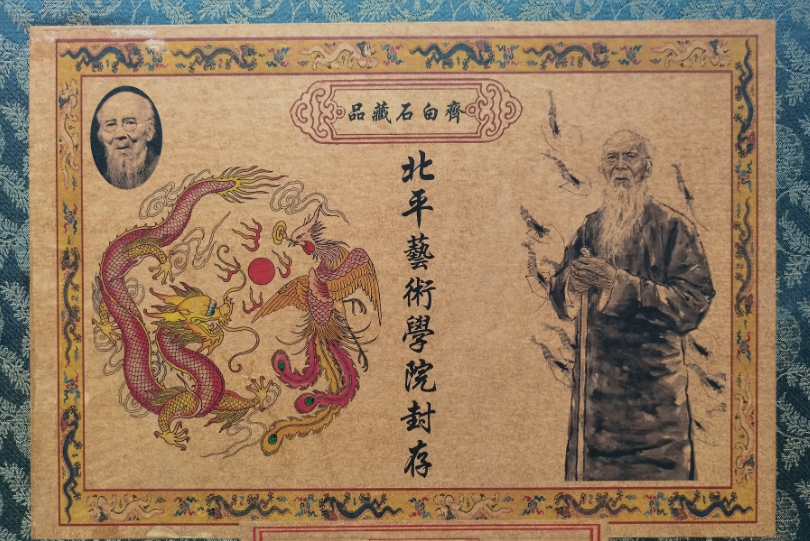 齊白石藏品
北平藝術學院封存